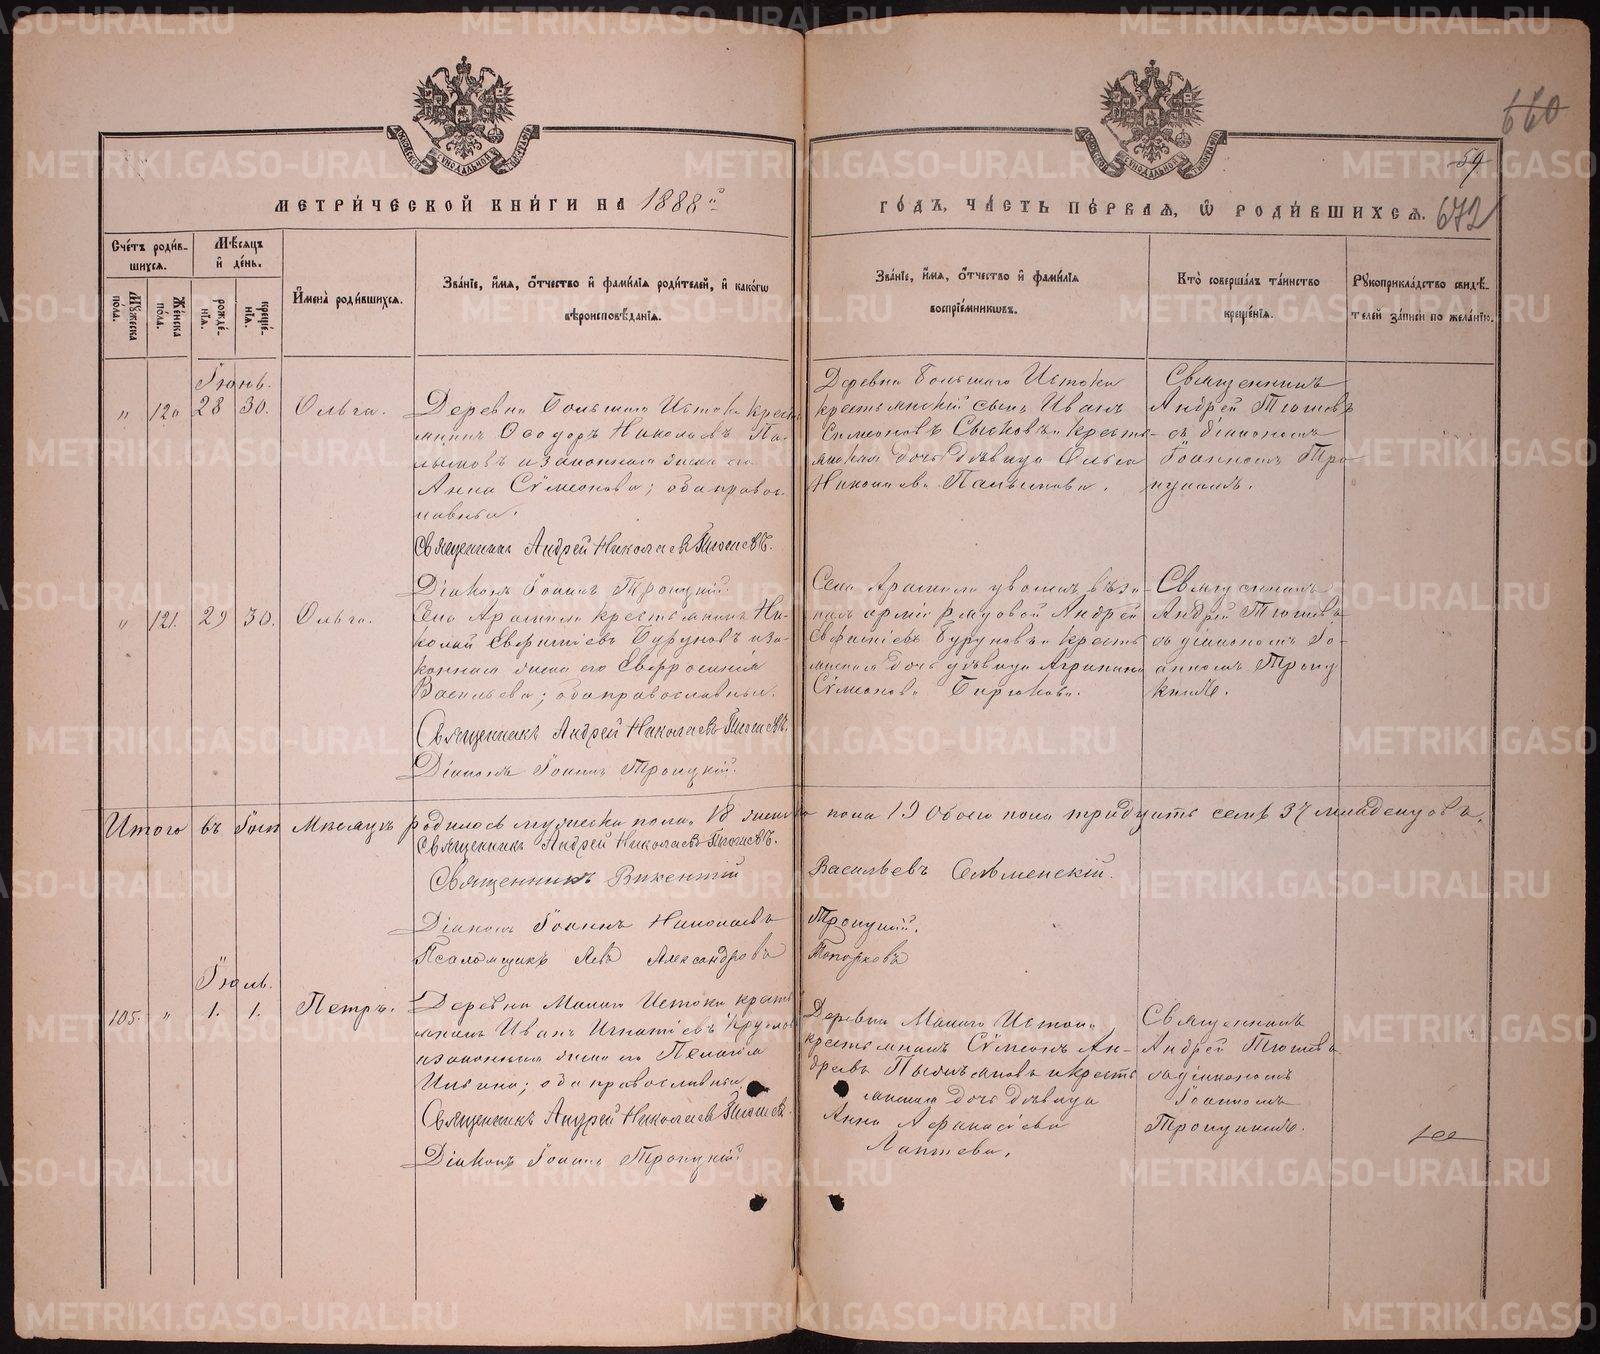 660
59
672
МЕТРИ́ЧЕСКОЙ КНИ́ГИ НА 1888й
ГО́ДЪ, ЧА́СТЬ ПЕ́РВАЯ, Ѡ РОДИ́ВШИХСЯ.
Сче́тъ роди́в-
шихся.
Му́жеска
по́ла.
Же́нска
по́ла.
Мѣ́сяцъ
и де́нь.
рожде́-
нїя.
креще́-
нїя.
Имена̀ роди́вшихся.
Зва́нїе, и́мя, о́тчество и фами́лїя роди́телей, и како́гѡ
вѣроисповѣ́данїя.
Зва́нїе, и́мя, о́тчество и фами́лїя
воспрїе́мникѡвъ.
Кто̀ соверша́лъ та́инство
креще́нїя.
Рукоприкла́дство свидѣ́-
телей за́писи по жела́нїю.
Іюнь.
„ 120 28 30. Ольга.
Деревни Большаго Истока крес
янинъ Ѳеодоръ Николаевъ Па-
лымовъ и законная жена его
Анна Сѵмеонова; оба правос-
лавные.
Священникъ Андрей Николаевъ Тюшевъ.
Діаконъ Іоаннъ Троицкій.
Деревни Большаго Истока
крестьянскій сынъ Иванъ
Симеоновъ и кресть-
янская дочь дѣвица Ольга
Николаева
Священникъ
Андрей Тюшевъ
съ діакономъ
Іоанномъ Тро
ицкимъ.
„ 121. 29 30. Ольга.
Села Арамили крестьянинъ Ни-
колай Евфиміевъ Буруновъ и за-
конная жена его Евфросинія
Васильева; оба православные.
Священникъ Андрей Николаевъ Тюшевъ.
Діаконъ Іоаннъ Троицкій.
Села Арамили уволен въ за-
пасъ арміи рядовой Андрей
Евфиміевъ Буруновъ и кресть
янская дочь дѣвица Агрипина
Сѵмеонова Бирюкова.
Священникъ
Андрей Тюшевъ
съ діакономъ Іо-
анномъ Троиц
кимъ.
Итого въ Іюнѣ Мѣсяцѣ родилось мужеска пола 18 женска пола 19 Обоего пола тридцать семь 37 младенцовъ.
Священникъ Андрей Николаевъ Тюшевъ.
Священникъ Викентій Васильевъ Сельменскій.
Діаконъ Іоаннъ Николаевъ Троицкій.
Псаломщикъ Левъ Александровъ Топорковъ
Іюль.
105. „ 1. 1. Петръ.
Деревни Малаго Истока кресть
янинъ Иванъ Игнатіевъ
и законная жена его Пелагія
оба православные.
Священникъ Андрей Николаевъ Тюшевъ.
Діаконъ Іоаннъ Троицкій
Деревни Малаго Истока
крестьянинъ Сѵмеонъ Ан-
дреевъ и кресть
янская дочь дѣвица
Анна Афанасіева
Лаптева.
Священникъ
Андрей Тюшевъ
съ діакономъ
Іоанномъ
Троицкимъ.
METRIKI.GASO-URAL.RU